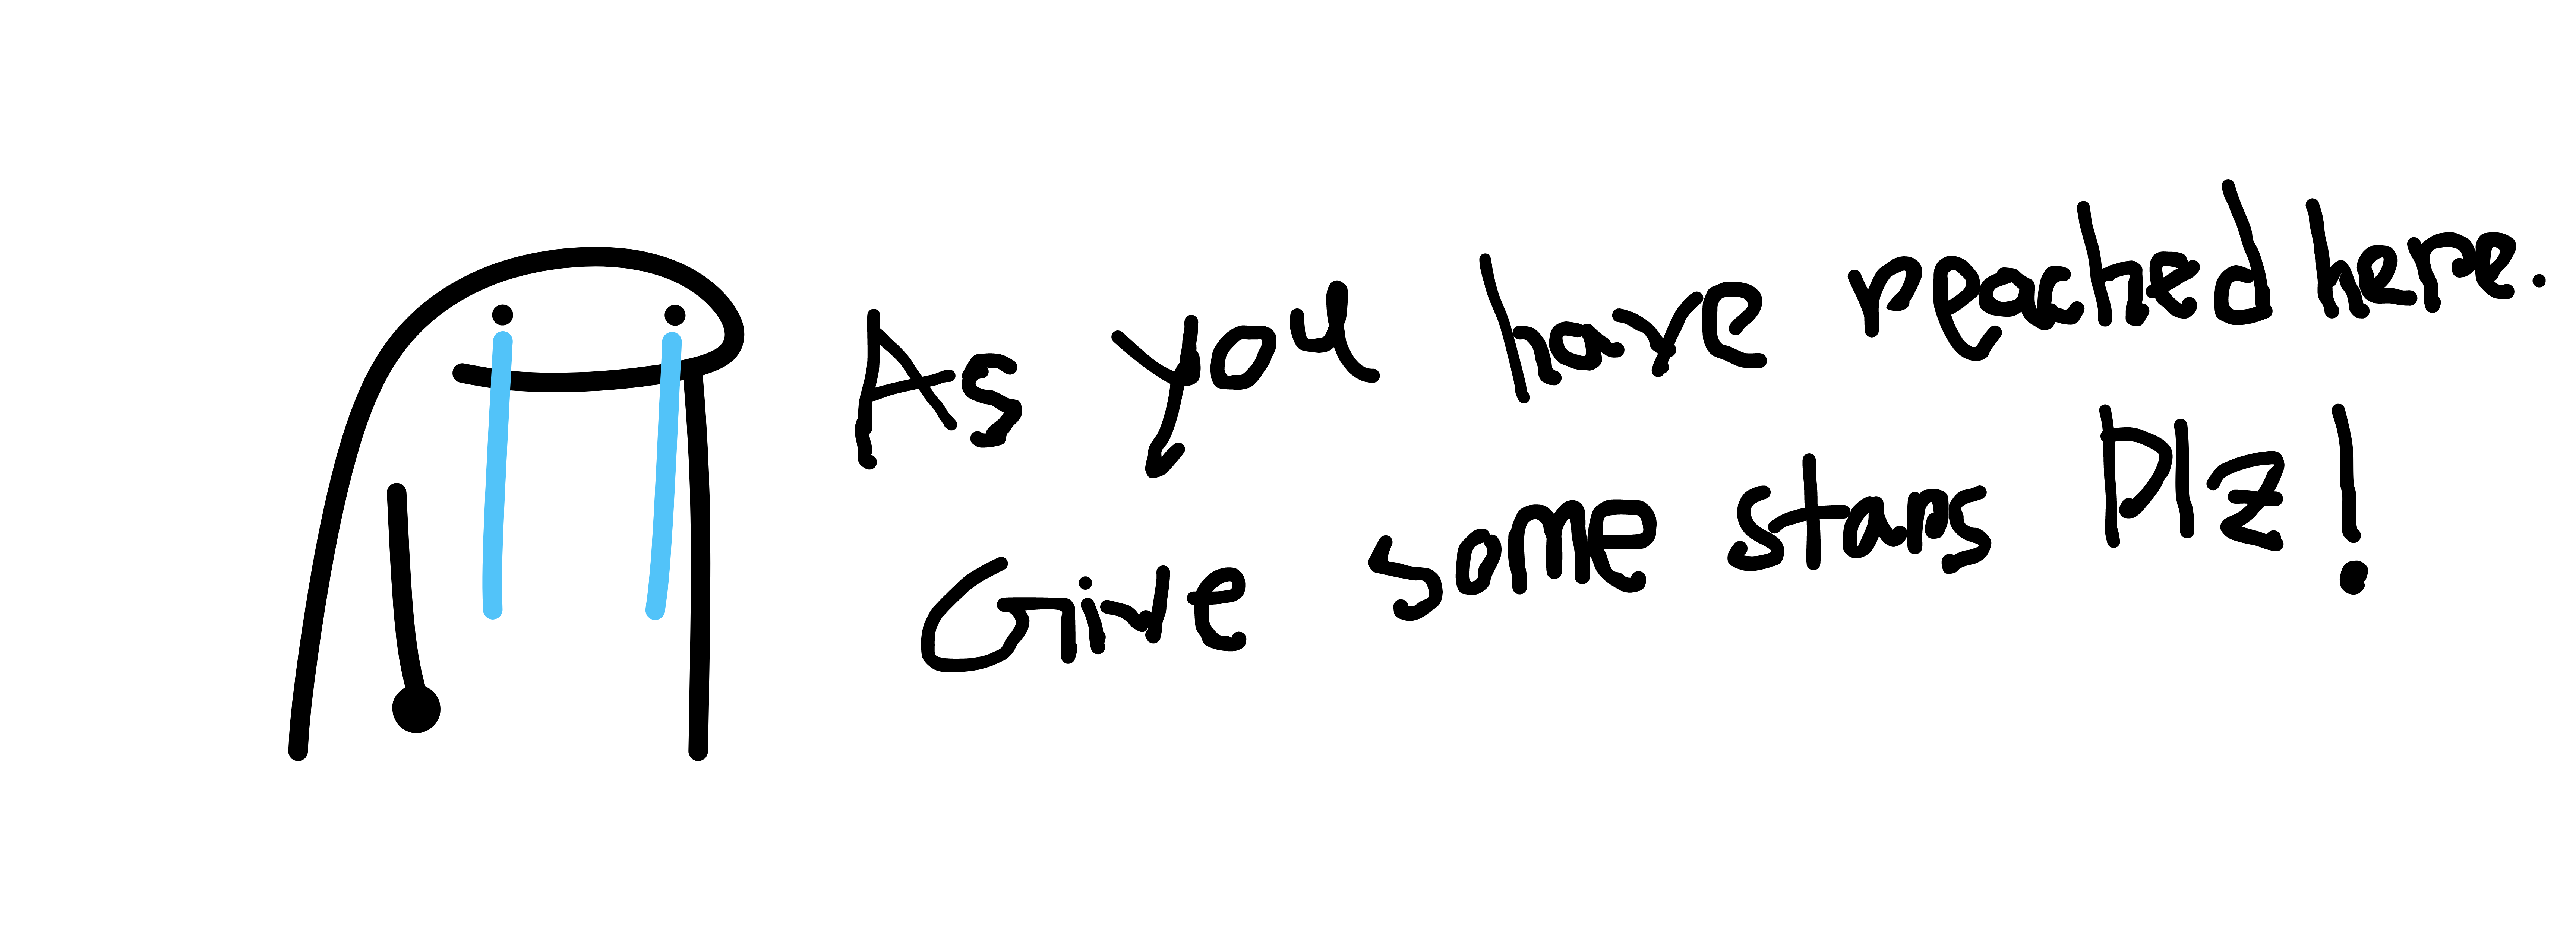 As you have reached here.
Give some stars Plz!